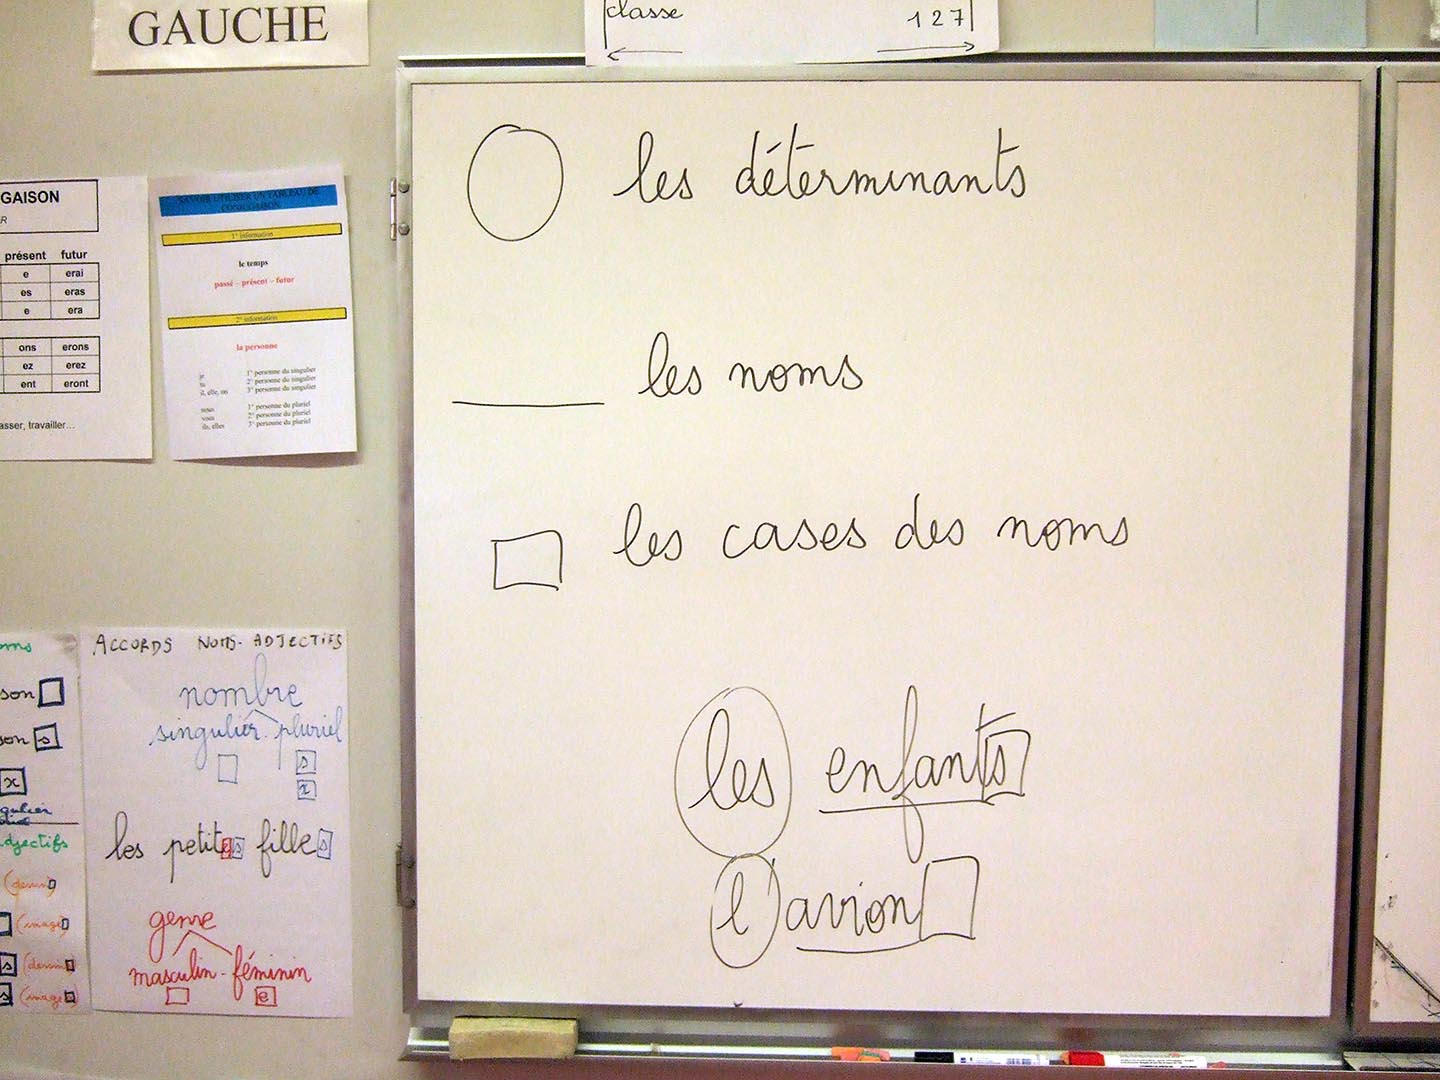 GAUCHE
classe 127
GAISON
présent futur
e erai
es eras
e era
ons erons
ez erez
ent eront
asser, travailler...
SAVOIR UTILISER UN TABLEAU DE
CONJUGAISON
1° information
le temps
passé – présent – futur
2° information
la personne
je 1° personne du singulier
tu 2° personne du singulier
il, elle, on 3° personne du singulier
nous 1° personne du pluriel
vous 2° personne du pluriel
ils, elles 3° personne du pluriel
les déterminants
les noms
les cases des noms
les enfants
l'avion
son
son s
x
djectifs
(dessin
(image
s (dessin
s (image
ACCORDS NOMS-ADJECTIFS
nombre
singulier-pluriel
s
x
les petites filles
genre
masculin-féminin
e